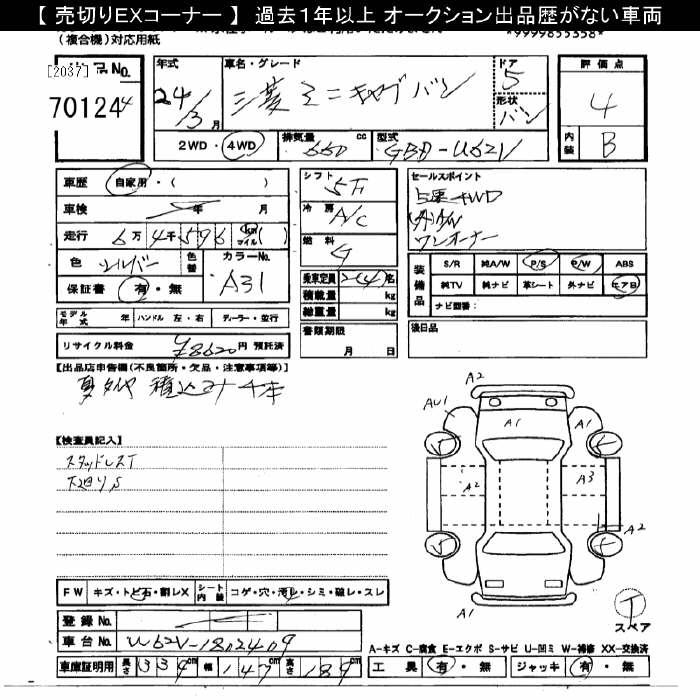 【 売切りEXコーナー 】 過去1年以上 オークション出品歴がない車両
(複合機)対応用紙
*9999855358*
[2037]
品No.
70124
年式
24/3月
車名・グレード
三菱 ミニキャブ バン
ドア
5
形状
バン
評価点
4
内装
B
2WD・4WD
排気量
660 cc
型式
GBD-U62V
車歴
自家用・( )
車検
年 月
走行
6万4千596 km マイル ( )
色
シルバー
色替
カラーNo.
A31
保証書
有・無
モデル年式
年
ハンドル 左・右
ディーラー・並行
リサイクル料金
¥8620円 預託済
シフト
5F
冷房
A/C
燃料
G
乗車定員
2(4)名
積載量
kg
総重量
kg
書類期限
月 日
セールスポイント
4WD
ワンオーナー
装備品
S/R
純A/W
P/S
P/W
ABS
純TV
純ナビ
革シート
外ナビ
エアB
ナビ型番:
後日品
【出品店申告欄(不良箇所・欠品・注意事項等)】
夏タイヤ 積込 4本
【検査員記入】
スタッドレスT
下廻りS
FW
キズ・トビ石・割レX
シート内装
コゲ・穴・汚レ・シミ・破レ・スレ
登録No.
車台No.
U62V-1802409
車庫証明用
長さ 339cm
幅 147cm
高さ 189cm
A2
AU1
A1
A1
A2
A3
A2
A1
T
スペア
A-キズ C-腐食 E-エクボ S-サビ U-凹ミ W-補修 XX-交換済
工具
有・無
ジャッキ
有・無